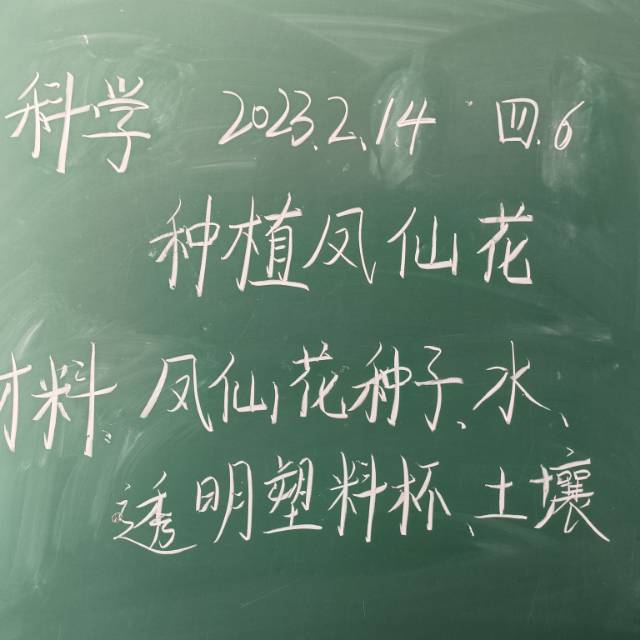 科学 2023.2.14 四.6
种植凤仙花
材料、凤仙花种子、水、
透明塑料杯、土壤